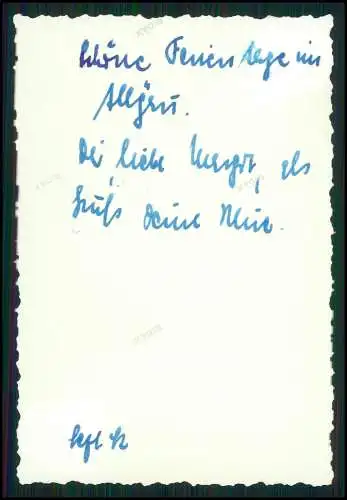 Schöne Ferientage im
Allgäu.
Dir liebe Margot, als
Gruß Deine
Sept. 62